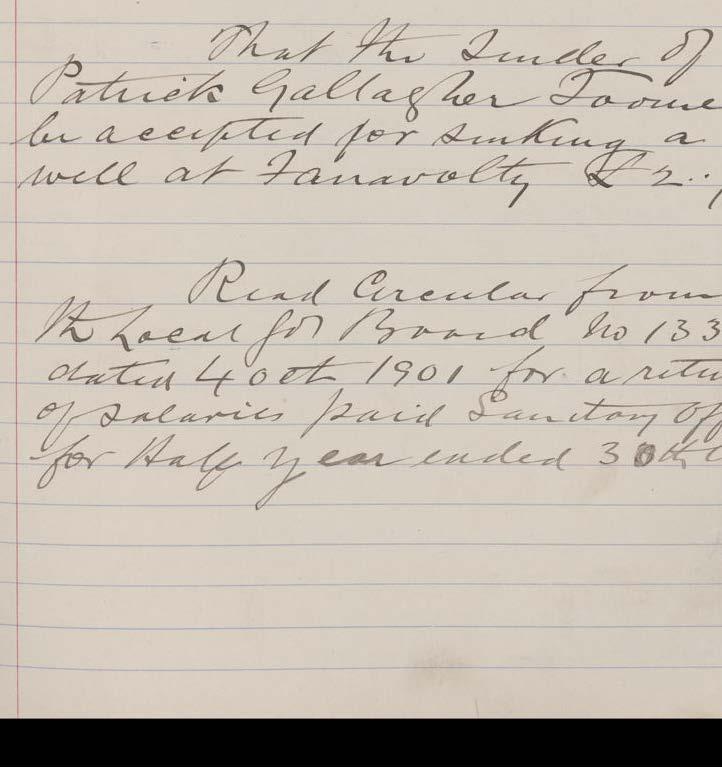 That the Tender of
Patrick Gallagher Toome
be accepted for sinking a
well at Fanavolty £2..
Read Circular from
the Local Gvt Board No 133
dated 4 Oct 1901 for a retu
of Salaries paid Sanitary Off
for Half year ended 30th